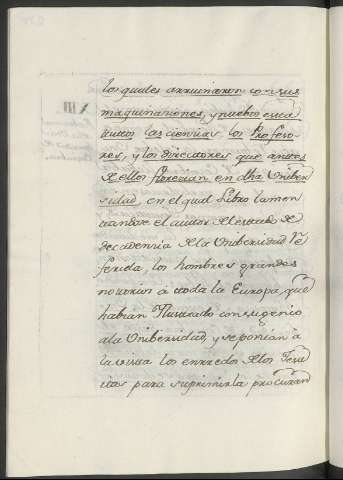 los quales arruinaron con sus
maquinaciones, y nuebos esta
tutos las ciencias, los Profeso-
res, y los directores que antes
de ellos florecian en dha Uniber
sidad, en el qual Libro lamen
tandose el autor del estado de
decadencia de la Unibersidad Re
ferida, los hombres grandes
notorios à toda la Europa, que
habian Ilustrado con su genio
ala Unibersidad, y se ponian à
la vista los enrredos de los Jesu
itas para suprimirla procuran
XIII